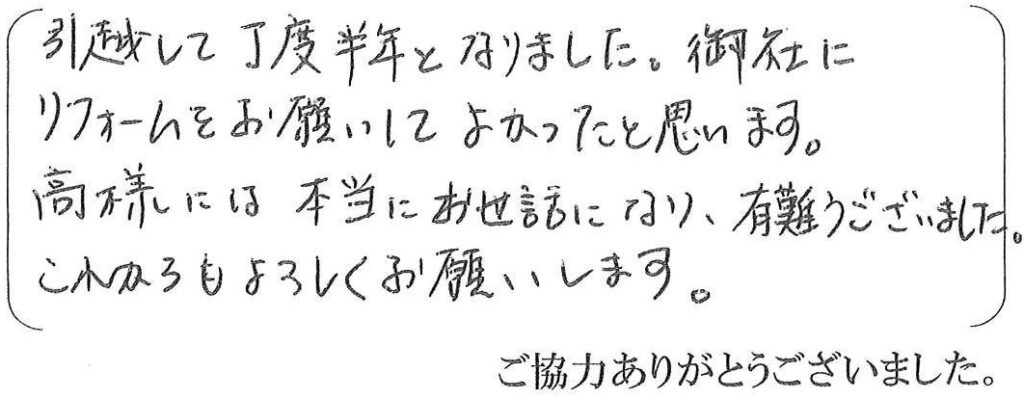 引越して丁度半年となりました。御社に
リフォームをお願いしてよかったと思います。
高様には本当にお世話になり、有難うございました。
これからもよろしくお願いいします。
ご協力ありがとうございました。